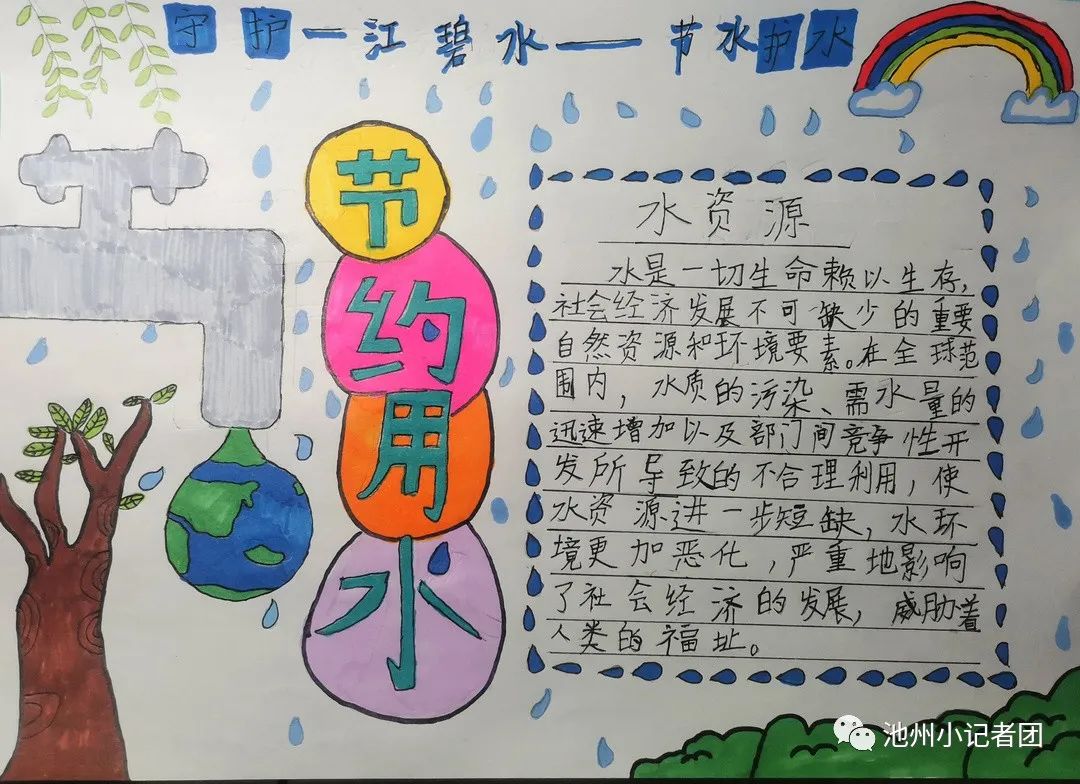 守护一江碧水——节水护水
节
约
用
水
水资源
水是一切生命赖以生存,
社会经济发展不可缺少的重要
自然资源和环境要素。在全球范
围内,水质的污染、需水量的
迅速增加以及部门间竞争性开
发所导致的不合理利用,使
水资源进一步短缺,水环
境更加恶化,严重地影响
了社会经济的发展,威胁着
人类的福址。
池州小记者团